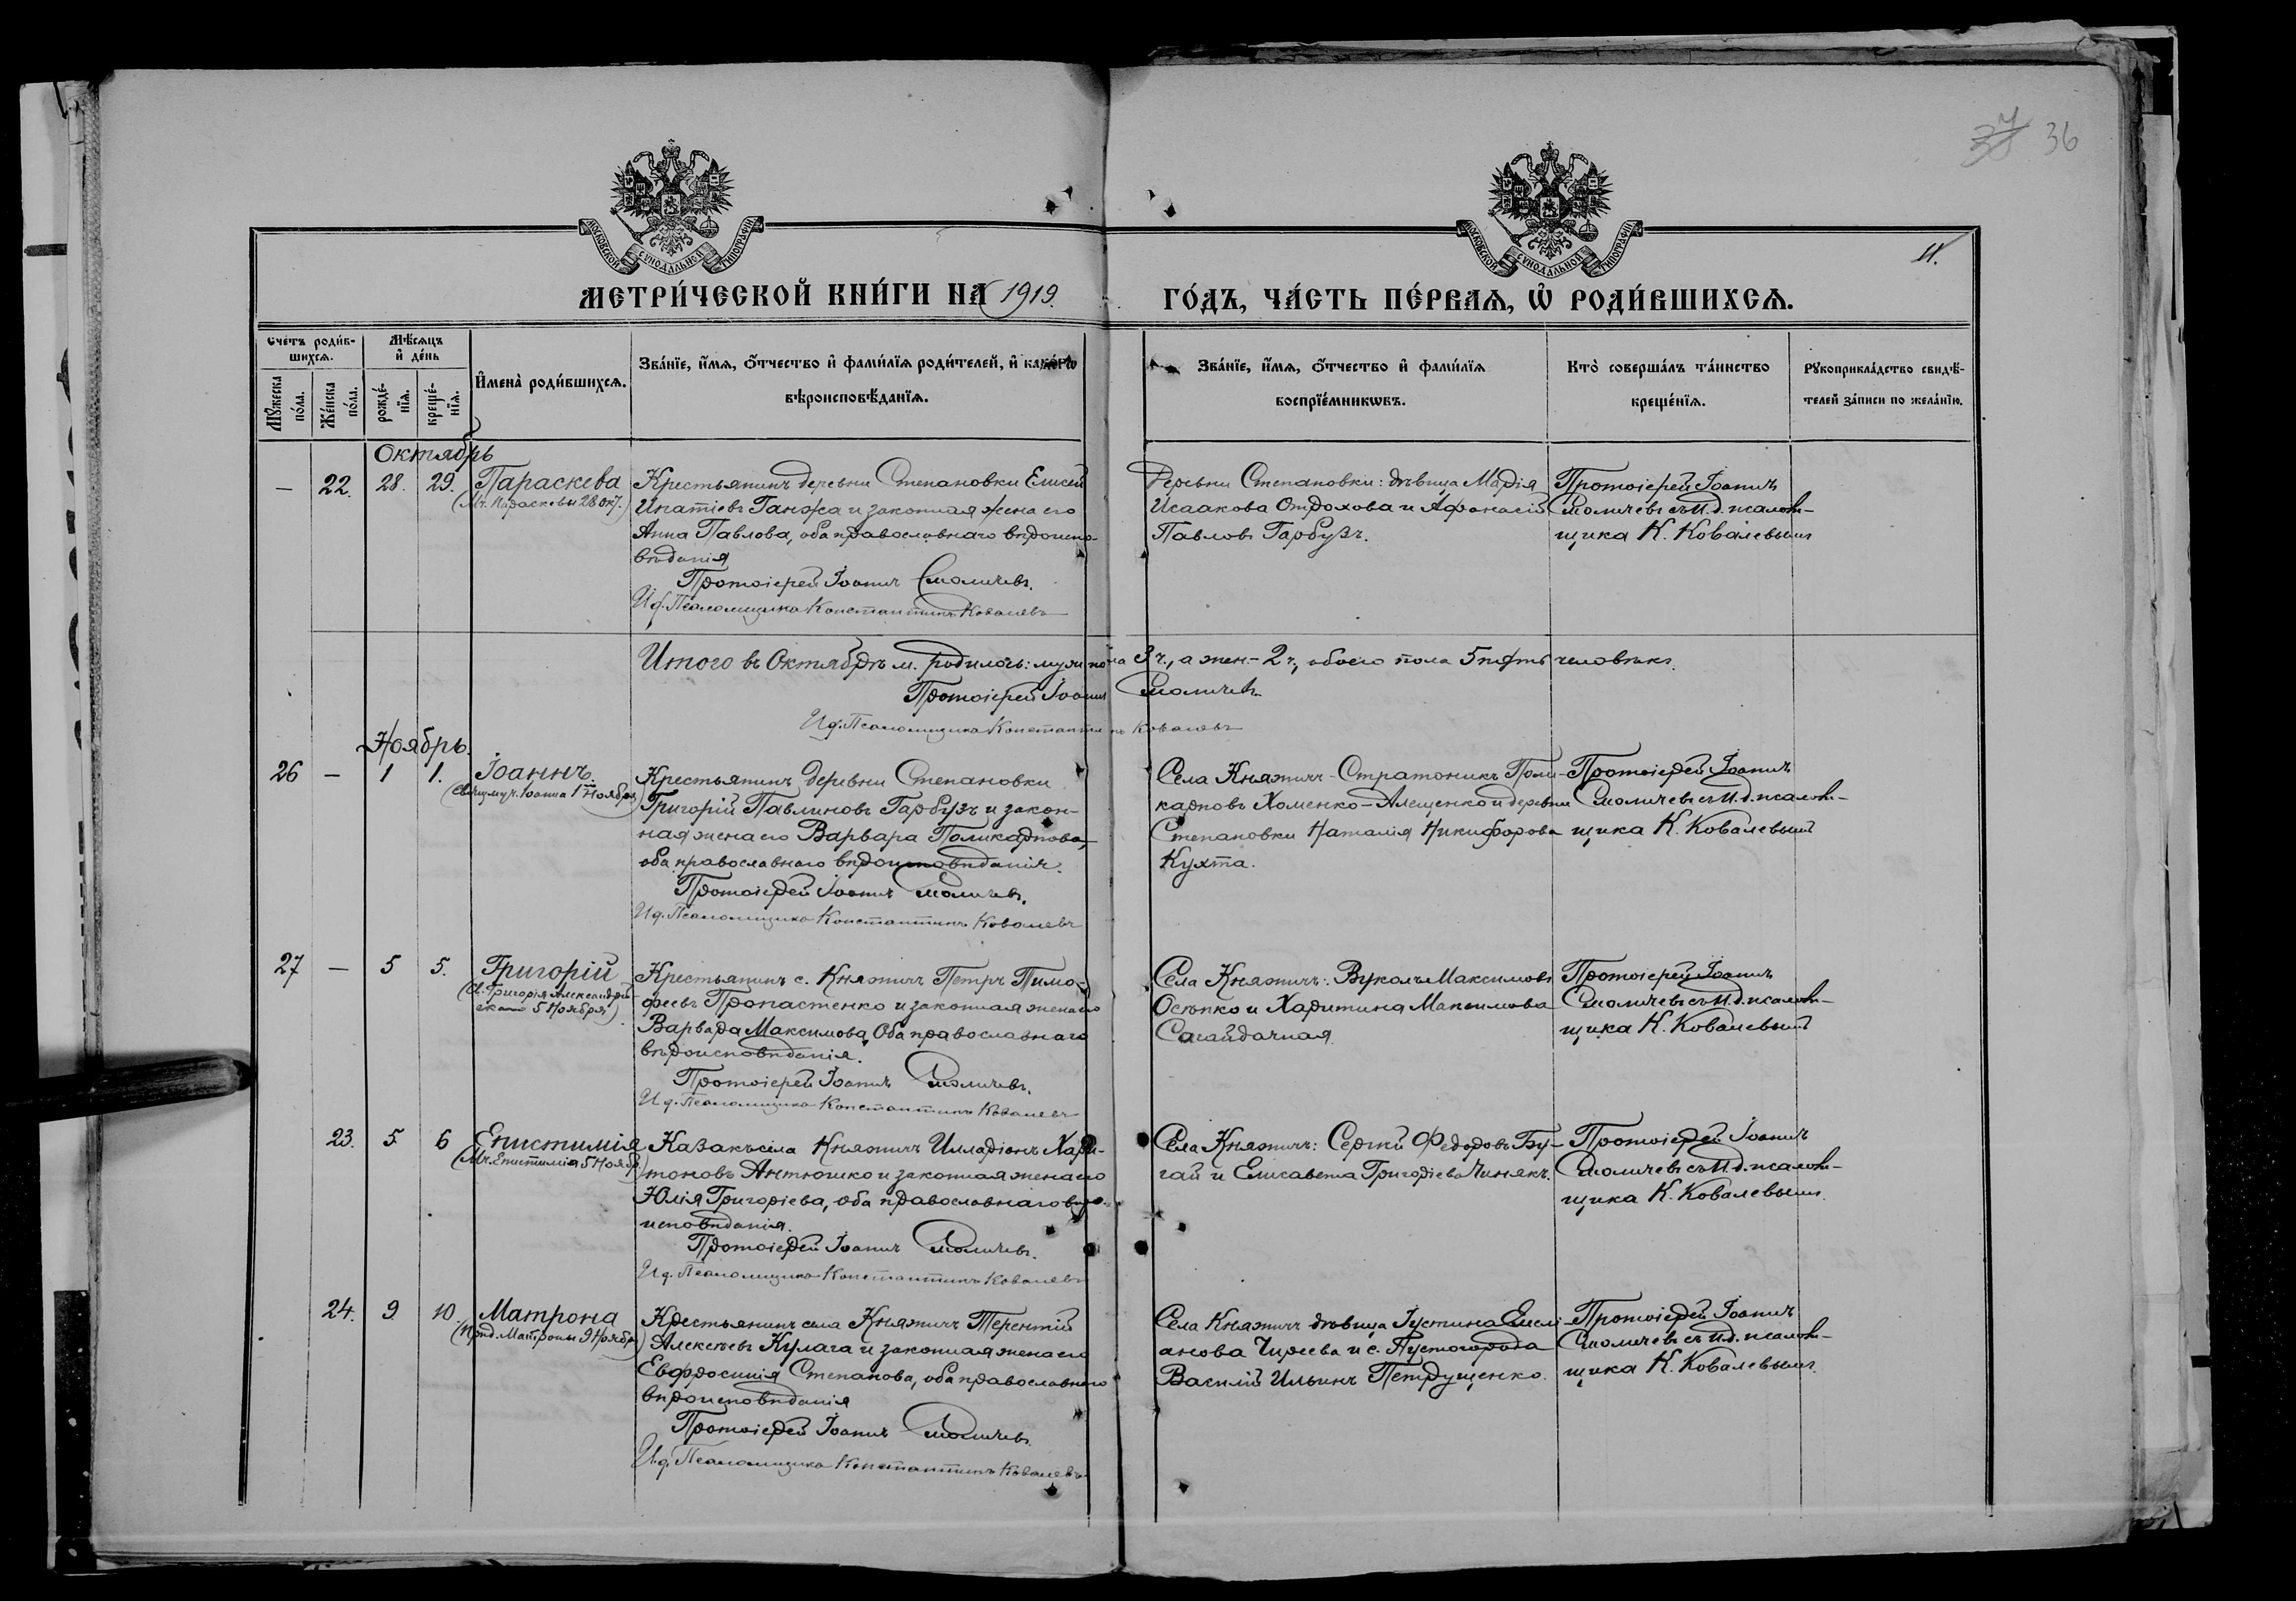 37 36
МОСКОВСКОЙ СУНОДАЛЬНОЙ ТИПОГРАФІИ
МОСКОВСКОЙ СУНОДАЛЬНОЙ ТИПОГРАФІИ
11.
МЕТРИ́ЧЕСКОЙ КНИ́ГИ НА 1919. ГО́ДЪ, ЧА́СТЬ ПЕ́РВАѦ, Ѡ РОДИ́ВШИХСѦ.
Сче́тъ роди́в-
шихсѧ.
Мѣ́сѧцъ
и҆ де́нь
Мꙋ́жеска
по́ла.
Же́нска
по́ла.
рожде́-
нїѧ.
креще́-
нїѧ.
И҆мена̀ роди́вшихсѧ.
Зва́нїе, и҆́мѧ, ѻ҆́тчество и҆ фами́лїѧ роди́телей, и҆ како́гѡ
вѣроисповѣ́данїѧ.
Зва́нїе, и҆́мѧ, ѻ҆́тчество и҆ фами́лїѧ
воспрїе́мникѡвъ.
Кто̀ соверша́лъ та́инство
креще́нїѧ.
Рꙋкоприкла́дство свидѣ́-
телей за́писи по жела́нїю.
Октябрь
— 22. 28. 29. Параскева
(Мч. Параскевы 28 окт.)
Крестьянинъ деревни Степановки Елисей
Игнатіевъ Ганжа и законная жена его
Анна Павлова, оба православнаго вѣроиспо-
вѣданія
Протоіерей Іоаннъ Смоличевъ.
И.д. Псаломщика Константинъ Ковалевъ
Деревни Степановки: дѣвица Марія
Исаакова Отрохова и Афанасій
Павловъ Гарбузъ.
Протоіерей Іоаннъ
Смоличевъ съ И.д. псалом-
щика К. Ковалевымъ
Итого въ Октябрѣ м. родилось: муж. пола 3 ч., а жен. - 2 ч., обоего пола 5 пять человѣкъ.
Протоіерей Іоаннъ Смоличевъ.
И.д. Псаломщика Константинъ Ковалевъ
Ноябрь.
26 — 1 1. Іоаннъ.
Крестьянинъ деревни Степановки
Григорій Павлиновъ Гарбузъ и закон-
ная жена его Варвара Поликарпова,
оба православнаго вѣроисповѣданія.
Протоіерей Іоаннъ Смоличевъ.
И.д. Псаломщика Константинъ Ковалевъ
Села Княжичъ - Стратоникъ Поли-
карповъ Хоменко-Алещенко и деревни
Степановки Наталія Никифорова
Кухта.
Протоіерей Іоаннъ
Смоличевъ съ И.д. псалом-
щика К. Ковалевымъ
27 — 5 5. Григорій
(Св. Григорія Александрій-
скаго 5 Ноября)
Крестьянинъ с. Княжичъ Петръ Тимо-
феевъ Пропастенко и законная жена его
Варвара Максимова, Оба православнаго
вѣроисповѣданія.
Протоіерей Іоаннъ Смоличевъ.
И.д. Псаломщика Константинъ Ковалевъ
Села Княжичъ: Вуколъ Максимовъ
Осѣпко и Харитина Максимова
Сагайдачная.
Протоіерей Іоаннъ
Смоличевъ съ И.д. псалом-
щика К. Ковалевымъ
23. 5 6 Епистимія
(Мч. Епистиміи 5 Ноября)
Казакъ села Княжичъ Илларіонъ Хари-
тоновъ Антюшко и законная жена его
Юлія Григоріева, оба православнаго вѣро-
исповѣданія.
Протоіерей Іоаннъ Смоличевъ.
И.д. Псаломщика Константинъ Ковалевъ
Села Княжичъ: Сергій Федоровъ Бу-
гай и Елисавета Григоріева Чинякъ.
Протоіерей Іоаннъ
Смоличевъ съ И.д. псалом-
щика К. Ковалевымъ.
24. 9 10. Матрона
(Препод. Матроны 9 Ноября)
Крестьянинъ села Княжичъ Терентій
Алексѣевъ Кулага и законная жена его
Евфросинія Степанова, оба православнаго
вѣроисповѣданія
Протоіерей Іоаннъ Смоличевъ
И.д. Псаломщика Константинъ Ковалевъ
Села Княжичъ дѣвица Іустина Емели-
анова Чиреева и с. Пустогорода
Василій Ильинъ Петрущенко.
Протоіерей Іоаннъ
Смоличевъ съ И.д. псалом-
щика К. Ковалевымъ.